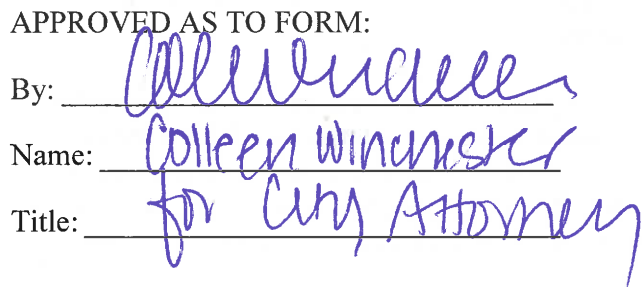 APPROVED AS TO FORM:
By:
Name: Colleen Winchester
Title: for City Attorney